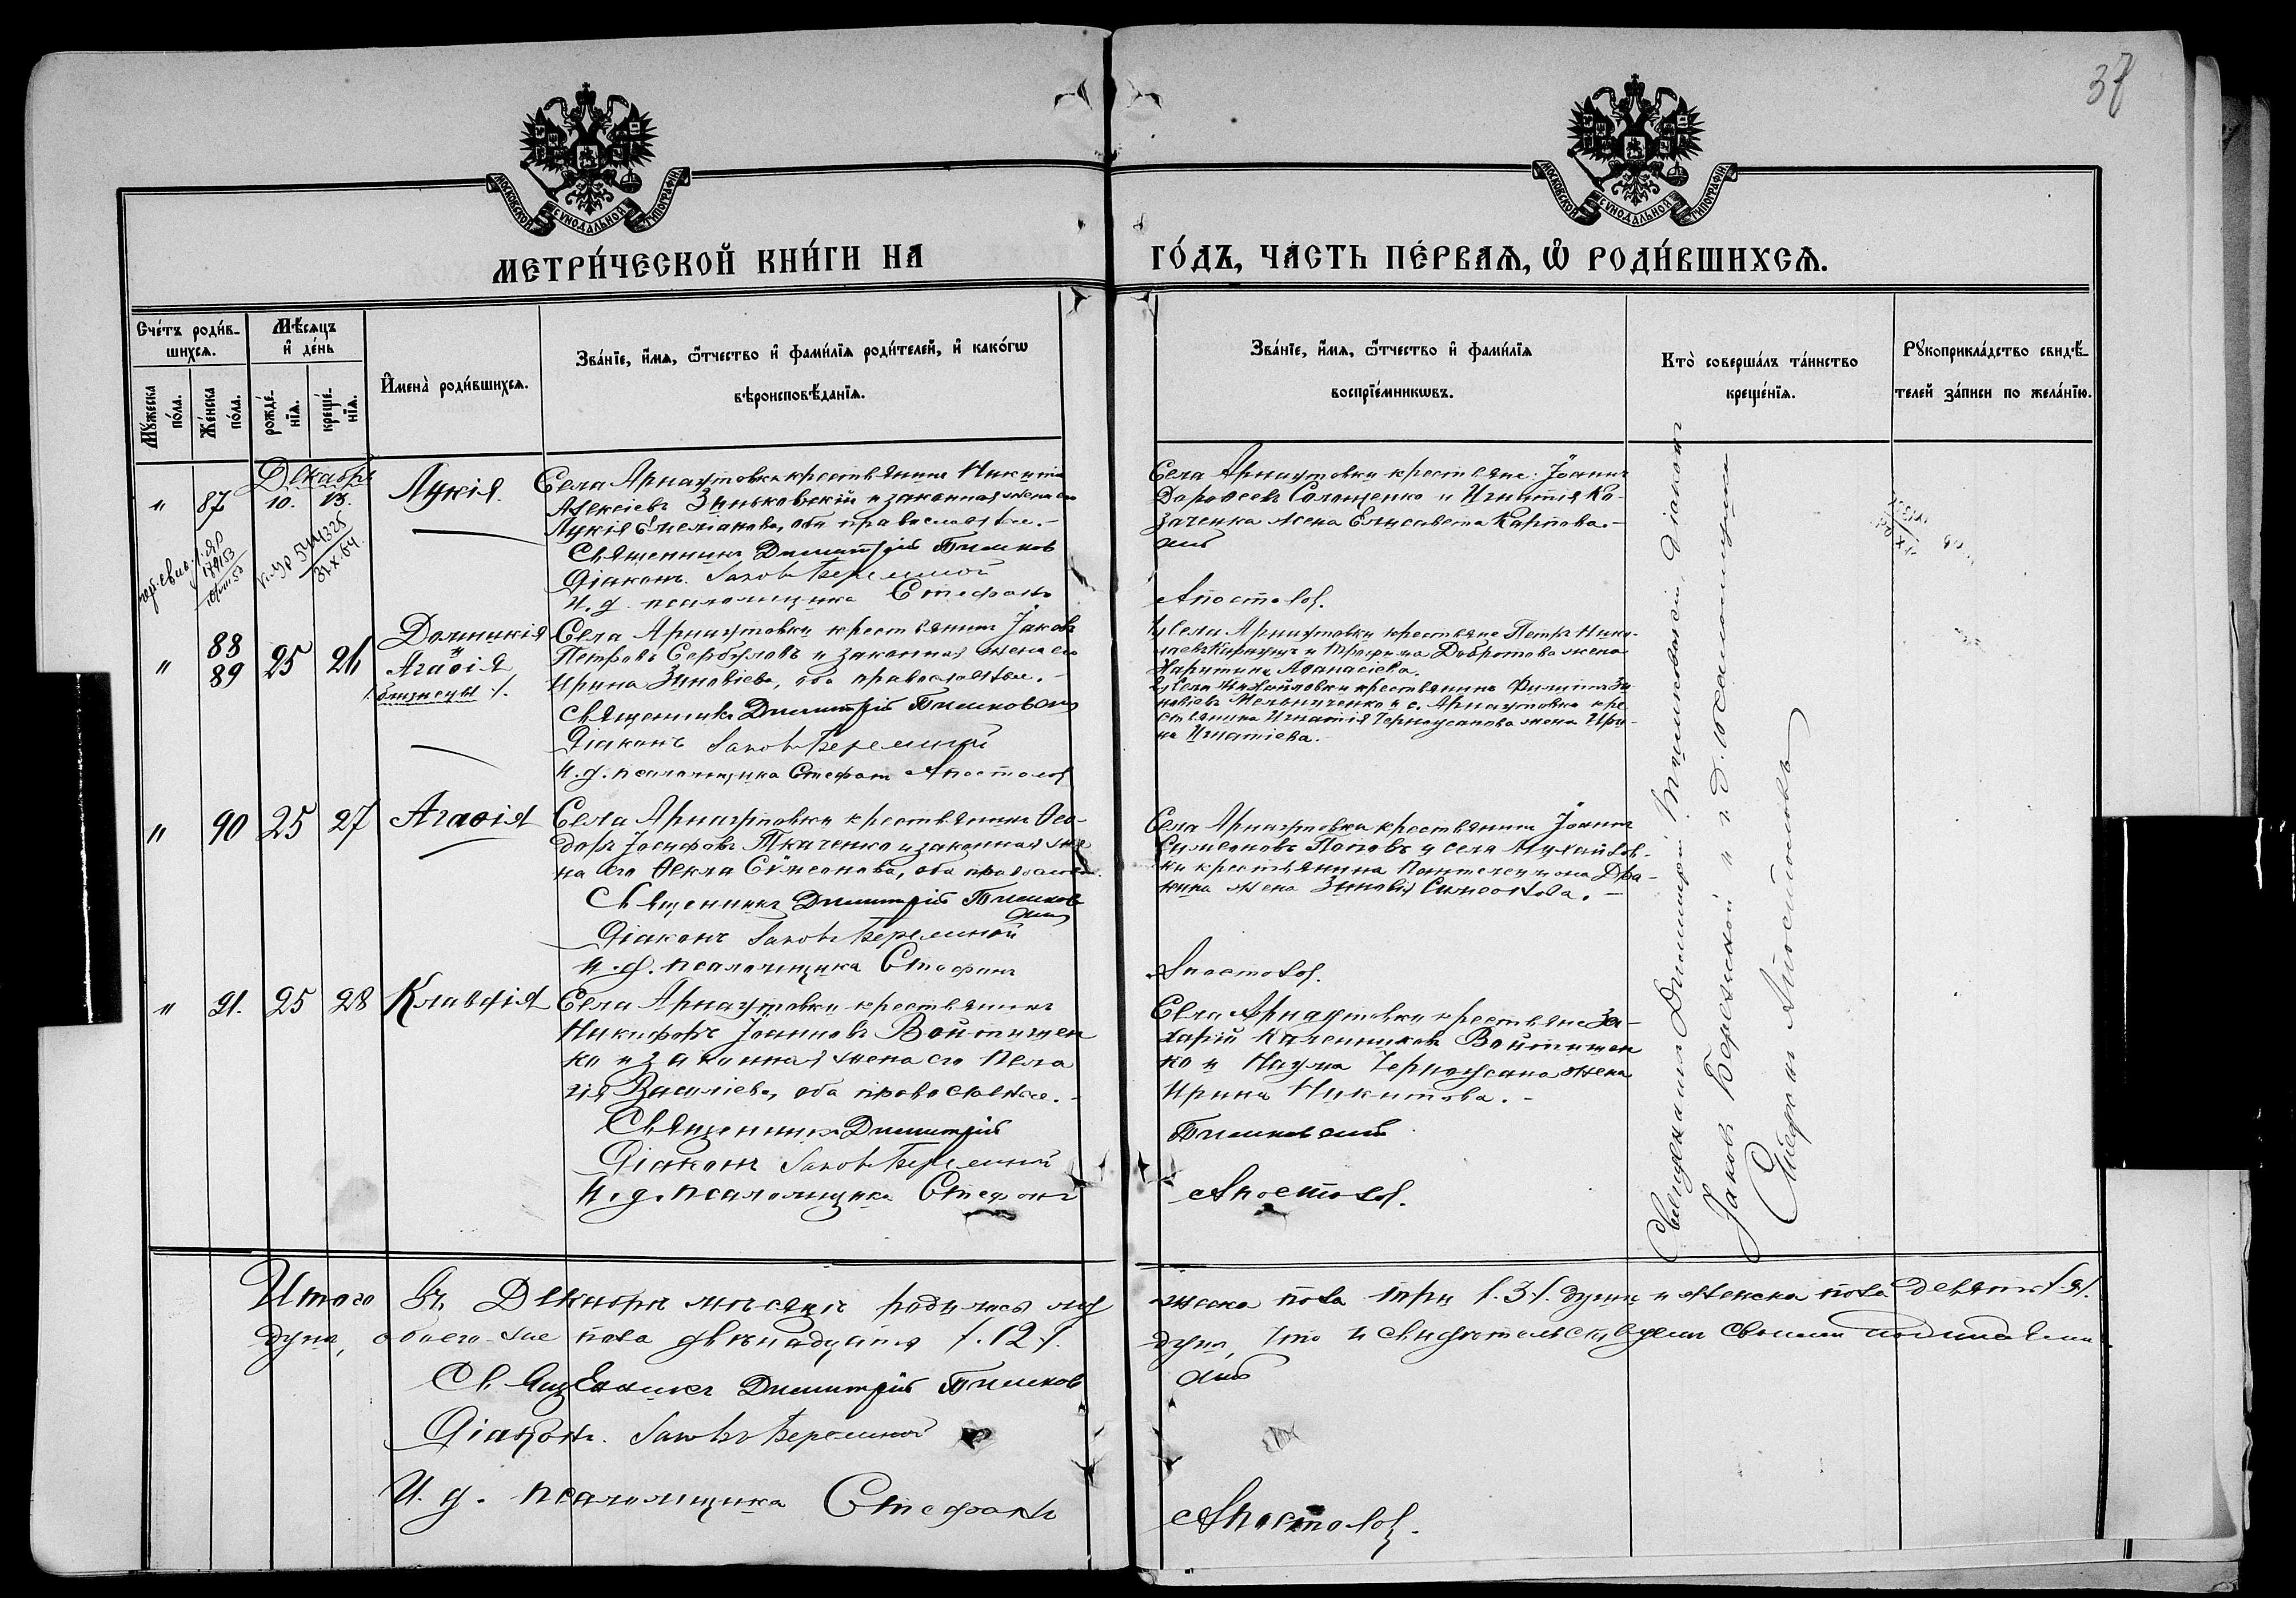 37
МОСКОВСКОЙ СУНОДАЛЬНОЙ ТИПОГРАФІИ
МОСКОВСКОЙ СУНОДАЛЬНОЙ ТИПОГРАФІИ
МЕТРИ́ЧЕСКОЙ КНИ́ГИ НА
ГО́ДЪ, ЧА́СТЬ ПЕ́РВАѦ, Ѡ҆ РОДИ́ВШИХСѦ.
Сче́тъ роди́в-
шихся.
Мꙋ́жеска по́ла.
Же́нска по́ла.
Мѣ́сяцъ
и҆ де́нь
рожде́-
нїя.
креще́-
нїя.
И҆мена̀ роди́вшихся.
Зва́нїе, и҆́мя, ѻ҆́тчество и҆ фами́лїя роди́телей, и҆ како́гѡ
вѣроисповѣ́данїя.
Зва́нїе, и҆́мя, ѻ҆́тчество и҆ фами́лїя
воспрїе́мникѡвъ.
Кто̀ соверша́лъ та́инство
креще́нїя.
Рꙋкоприкла́дство свидѣ́-
телей за́писи по жела́нїю.
Декабрь
" 87 10. 13. Лукія
Села Арнаутовки крестьянинъ Никита
Алексіевъ Зиньковскій и законная жена его
Лукія Емеліанова, оба православные.-
Священникъ Димитрій Тимков
Діаконъ Іаковъ Бережной
И. д. псаломщика Стефанъ
Села Арнаутовки крестьяне: Іоаннъ
Дороѳеевъ Солощенко и Игнатія Ко-
заченка жена Елисавета Карпова.-
скій
Апостолов.
31.X.64.
" 88 89 25 26 Домникія
и
Агаѳія
близнецы
Села Арнаутовки крестьянинъ Іаковъ
Петровъ Сербуловъ и законная жена его
Ирина Зиновіева, оба православные.-
Священникъ Димитрій Тимковскій
Діаконъ Іаковъ Бережной
И. д. псаломщика Стефанъ Апостолов
1, Села Арнаутовки крестьяне Петръ Нико-
лаевъ и Трофима Добротова жена
Харитина Аѳанасіева.
2, Села Михайловки крестьянинъ Филиппъ Зи-
новіевъ Мельниченко и с. Арнаутовки кре-
стьянина Игнатія Черноусанова жена Ири-
на Игнатіева.
" 90 25 27 Агаѳія
Села Арнаутовки крестьянинъ Ѳео-
доръ Іосифовъ Ткаченко и законная же-
на его Ѳекла Симеонова, оба православн.
Священникъ Димитрій Тимков
скій
Діаконъ Іаковъ Бережной
И. д. псаломщика Стефанъ
Села Арнаутовки крестьянинъ Іоаннъ
Симеоновъ Поповъ и села Михайлов-
ки крестьянина Пантелеимона Дра-
нина жена Зиновія Симеонова.-
Апостолов.
" 91. 25 28 Клавдія
Села Арнаутовки крестьянинъ
Никифоръ Іоанновъ Войтишен
ко и законная жена его Пела
гія Василіева, оба православные.-
Священникъ Димитрій
Діаконъ Іаковъ Бережной
И. д. псаломщика Стефанъ
Села Арнаутовки крестьяне За-
харій Каленниковъ Войтишен
ко и Наума Черноусана жена
Ирина Никитова.-
Тимковскій
Апостолов.
Священникъ Димитрій Тимковскій, Діаконъ
Іаковъ Бережной и и. д. псаломщика
Стефанъ Апостоловъ
Итого въ Декабрѣ мѣсяцѣ родилось муж
жеска пола три /.3./. души и женска пола девять /.9./.
душъ, обоего-же пола двѣнадцать /.12./.
душъ, что и свидѣтельствуемъ своими подписями
Священникъ Димитрій Тимков
скій
Діаконъ. Іаковъ Бережной
И. д. псаломщика Стефанъ
Апостолов.